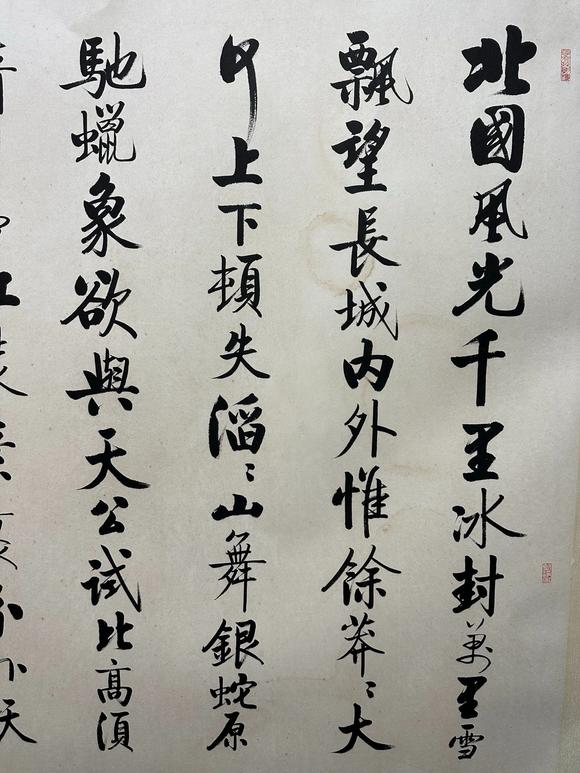 北國風光千里冰封萬里雪
飄望長城内外惟餘莽〻大
河上下頓失滔〻山舞銀蛇原
馳蠟象欲與天公試比高須